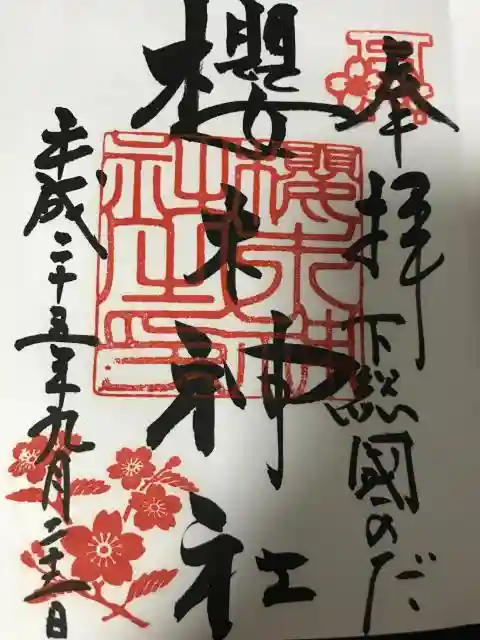 奉拝 下総國のだ
櫻木神社
櫻木神社之印
平成二十五年九月二十一日